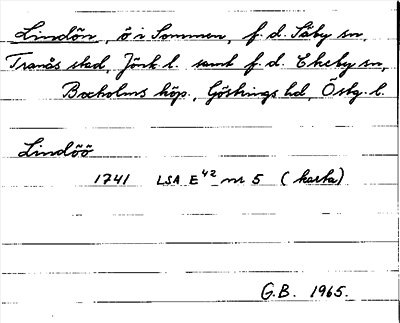 Lindön, ö i Sommen, f. d. Säby sn,
Tranås stad, Jönk. l. samt f. d. Ekeby sn,
Boxholms köp., Göstrings hd, Östg. l.
Lindöö
1741 LSA E42 nr 5 (karta)
G.B. 1965.